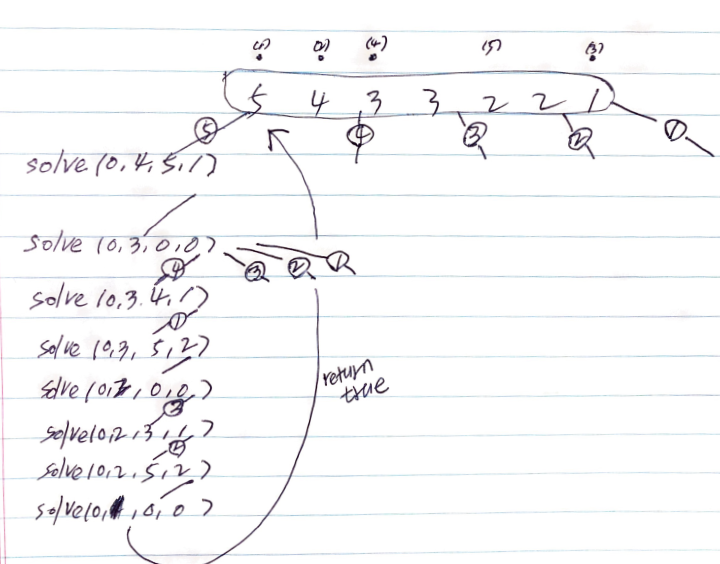 (1) (2) (4) (5) (3)
5 4 3 3 2 2 1
⑤ ④ ③ ② ①
solve (0, 4, 5, 1)
solve (0, 3, 0, 0)
④ ③ ② ①
solve (0, 3, 4, 1)
①
solve (0, 3, 5, 2)
solve (0, 2, 0, 0)
③
solve (0, 2, 3, 1)
②
solve (0, 2, 5, 2)
solve (0, , 0, 0)
return
true